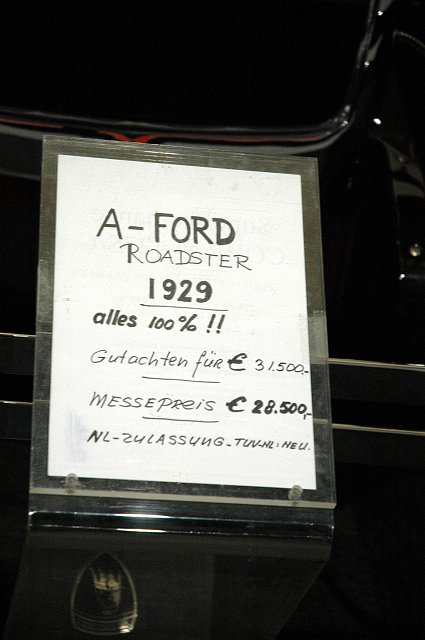 A-FORD
ROADSTER
1929
alles 100% !!
Gutachten für € 31.500,-
MESSEPREIS € 28.500,-
NL-ZULASSUNG-TUV-NL: NEU.